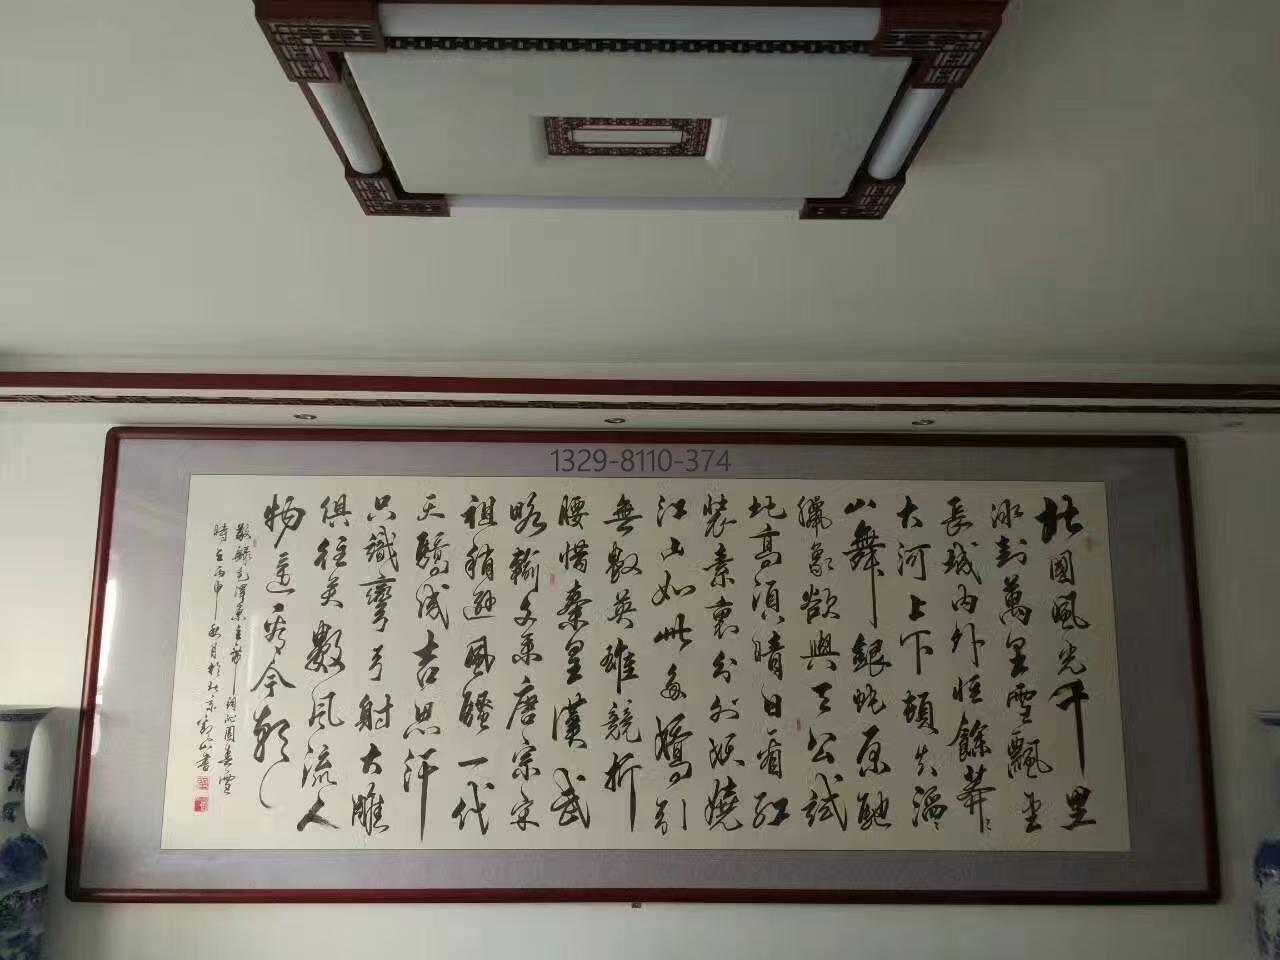 1329-8110-374
北國風光千里
冰封萬里雪飄望
長城內外惟餘莽〻
大河上下頓失滔〻
山舞銀蛇原馳
臘象欲與天公試
比高須晴日看紅
裝素裹分外妖嬈
江山如此多嬌引
無數英雄競折
腰惜秦皇漢武
略輸文采唐宗宋
祖稍遜風騷一代
天驕成吉思汗
只識彎弓射大雕
俱往矣數風流人
物還看今朝
敬錄毛澤東主席詞沁園春雪
時在丙申秋月於北京山書